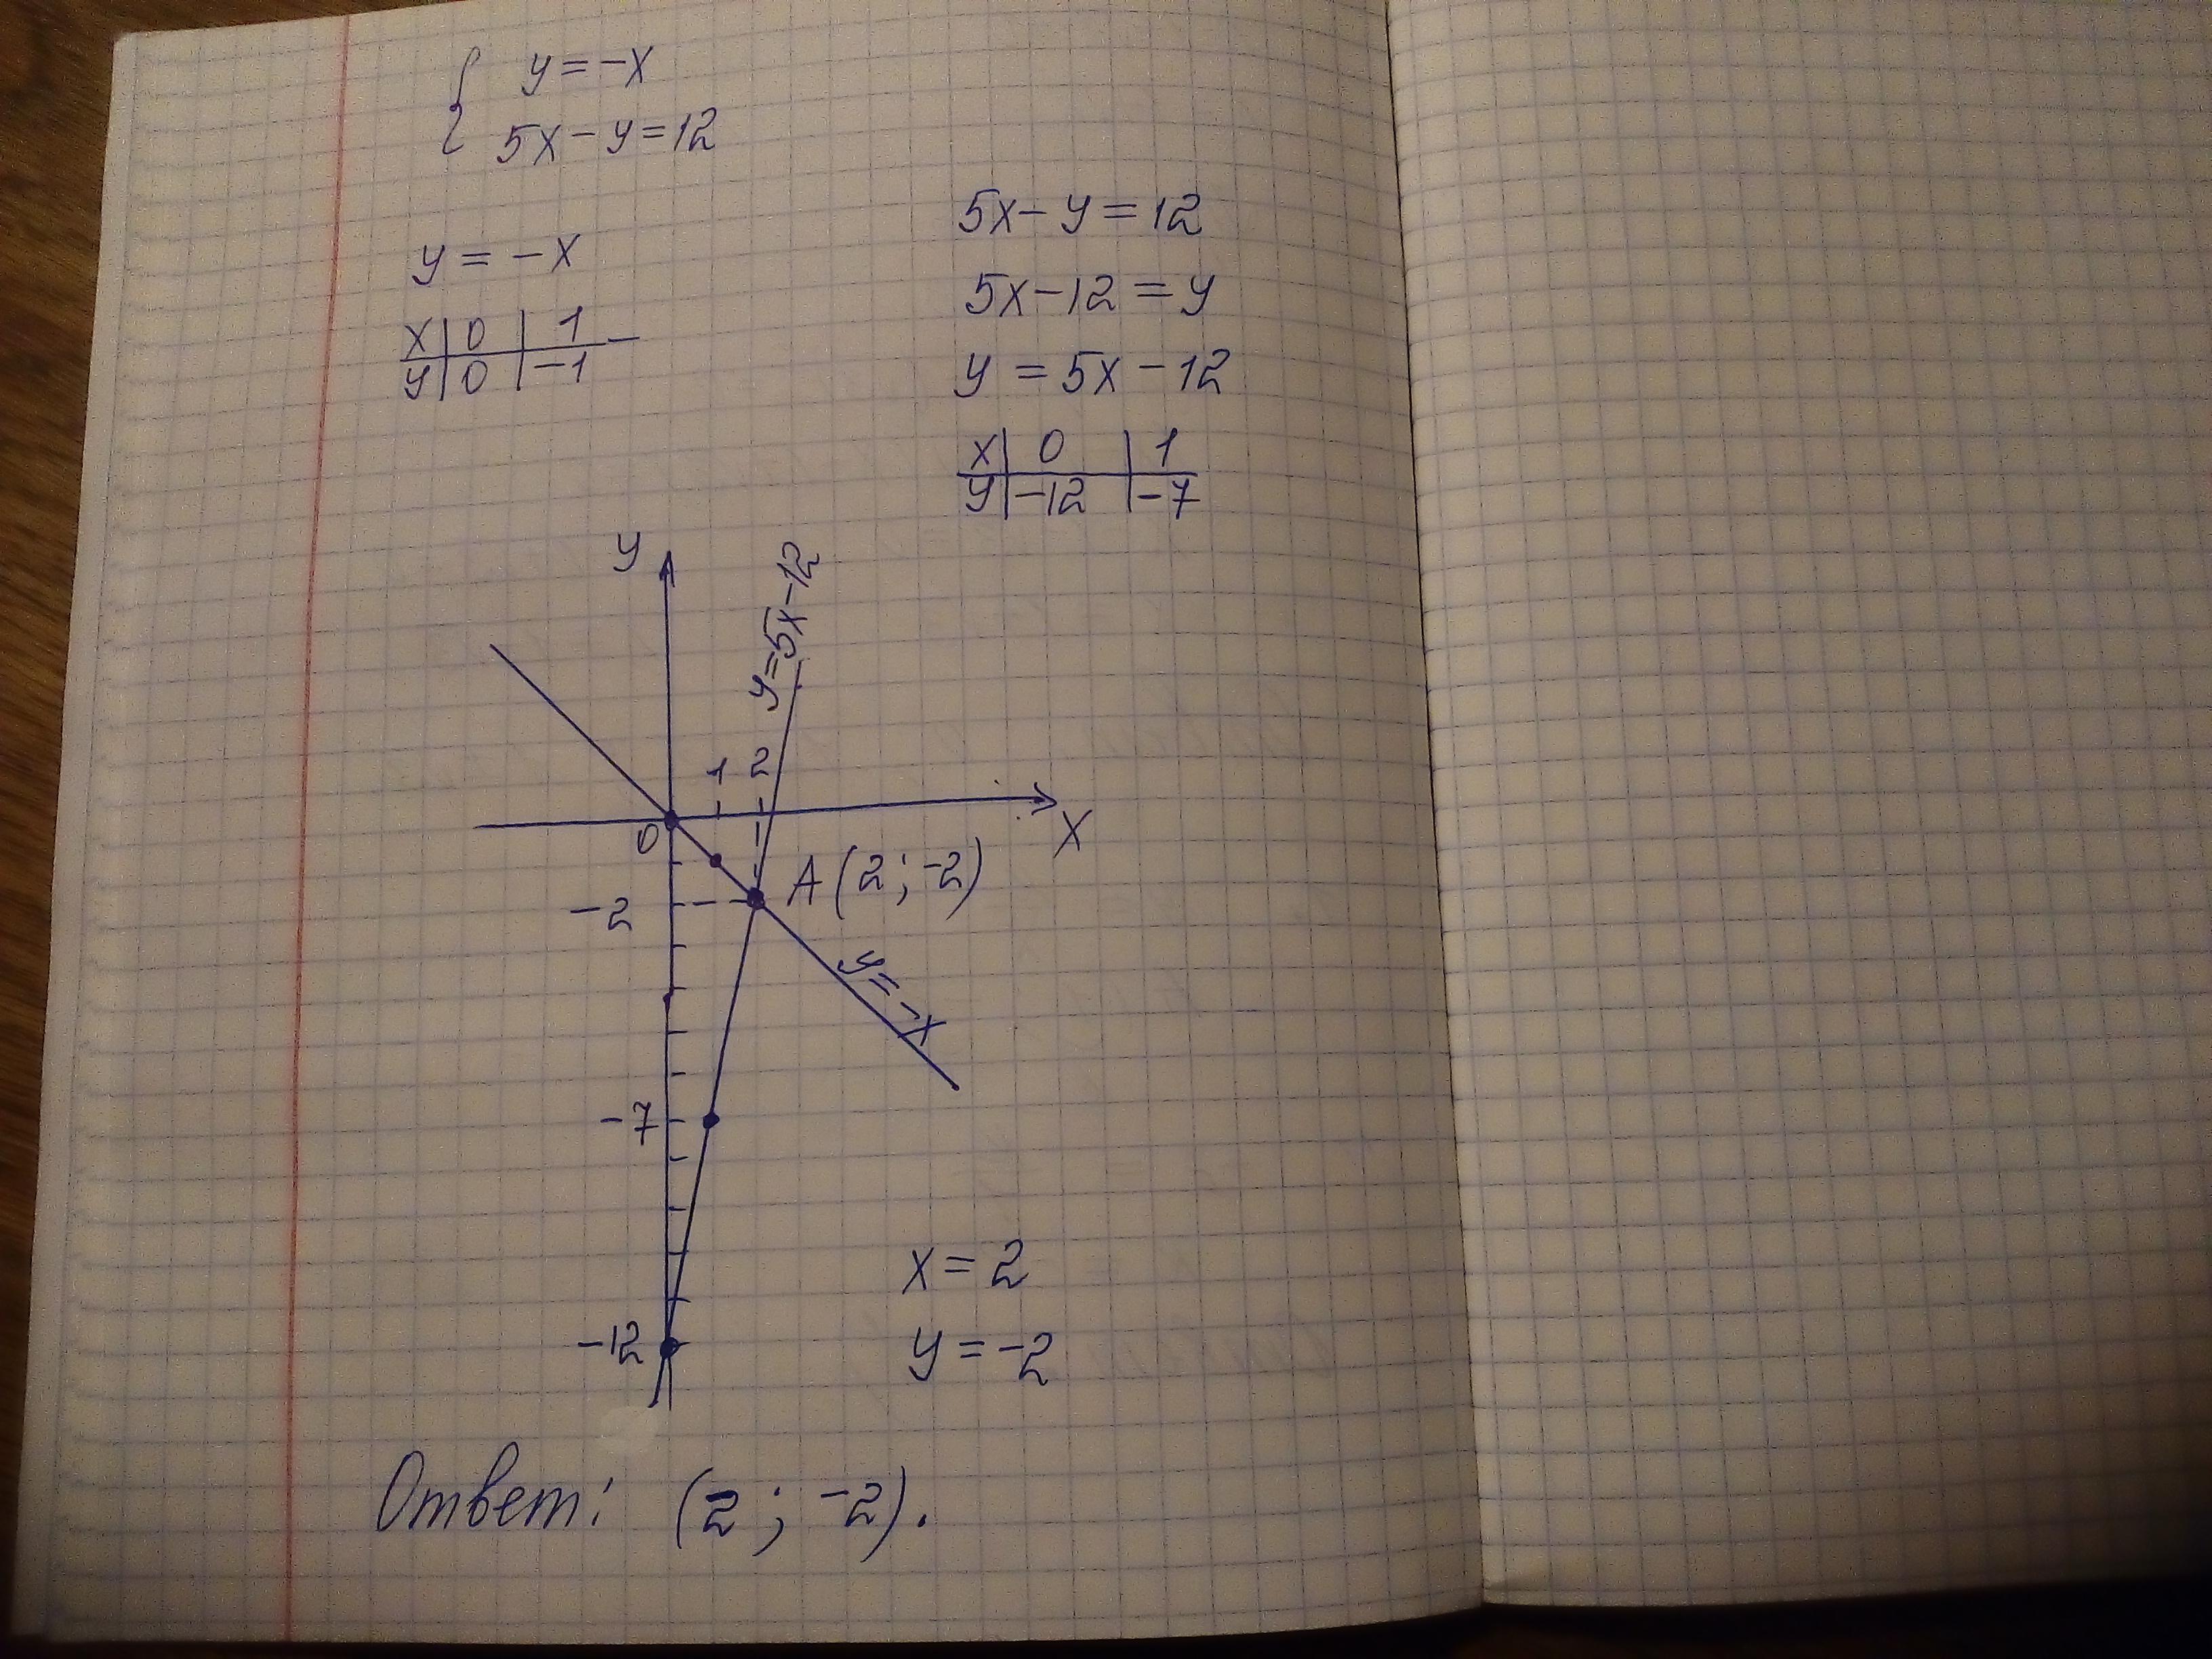 { y = -x
5x - y = 12
y = -x
x | 0 | 1
y | 0 | -1
5x - y = 12
5x - 12 = y
y = 5x - 12
x | 0 | 1
y | -12 | -7
y
y = 5x - 12
1 2
0
x
A (2 ; -2)
-2
y = -x
-7
-12
x = 2
y = -2
Ответ: (2 ; -2).